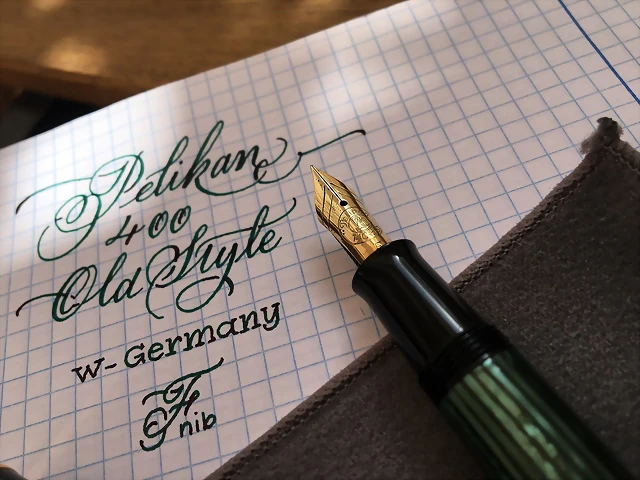 Pelikan
400
Old Style
W-Germany
F
nib